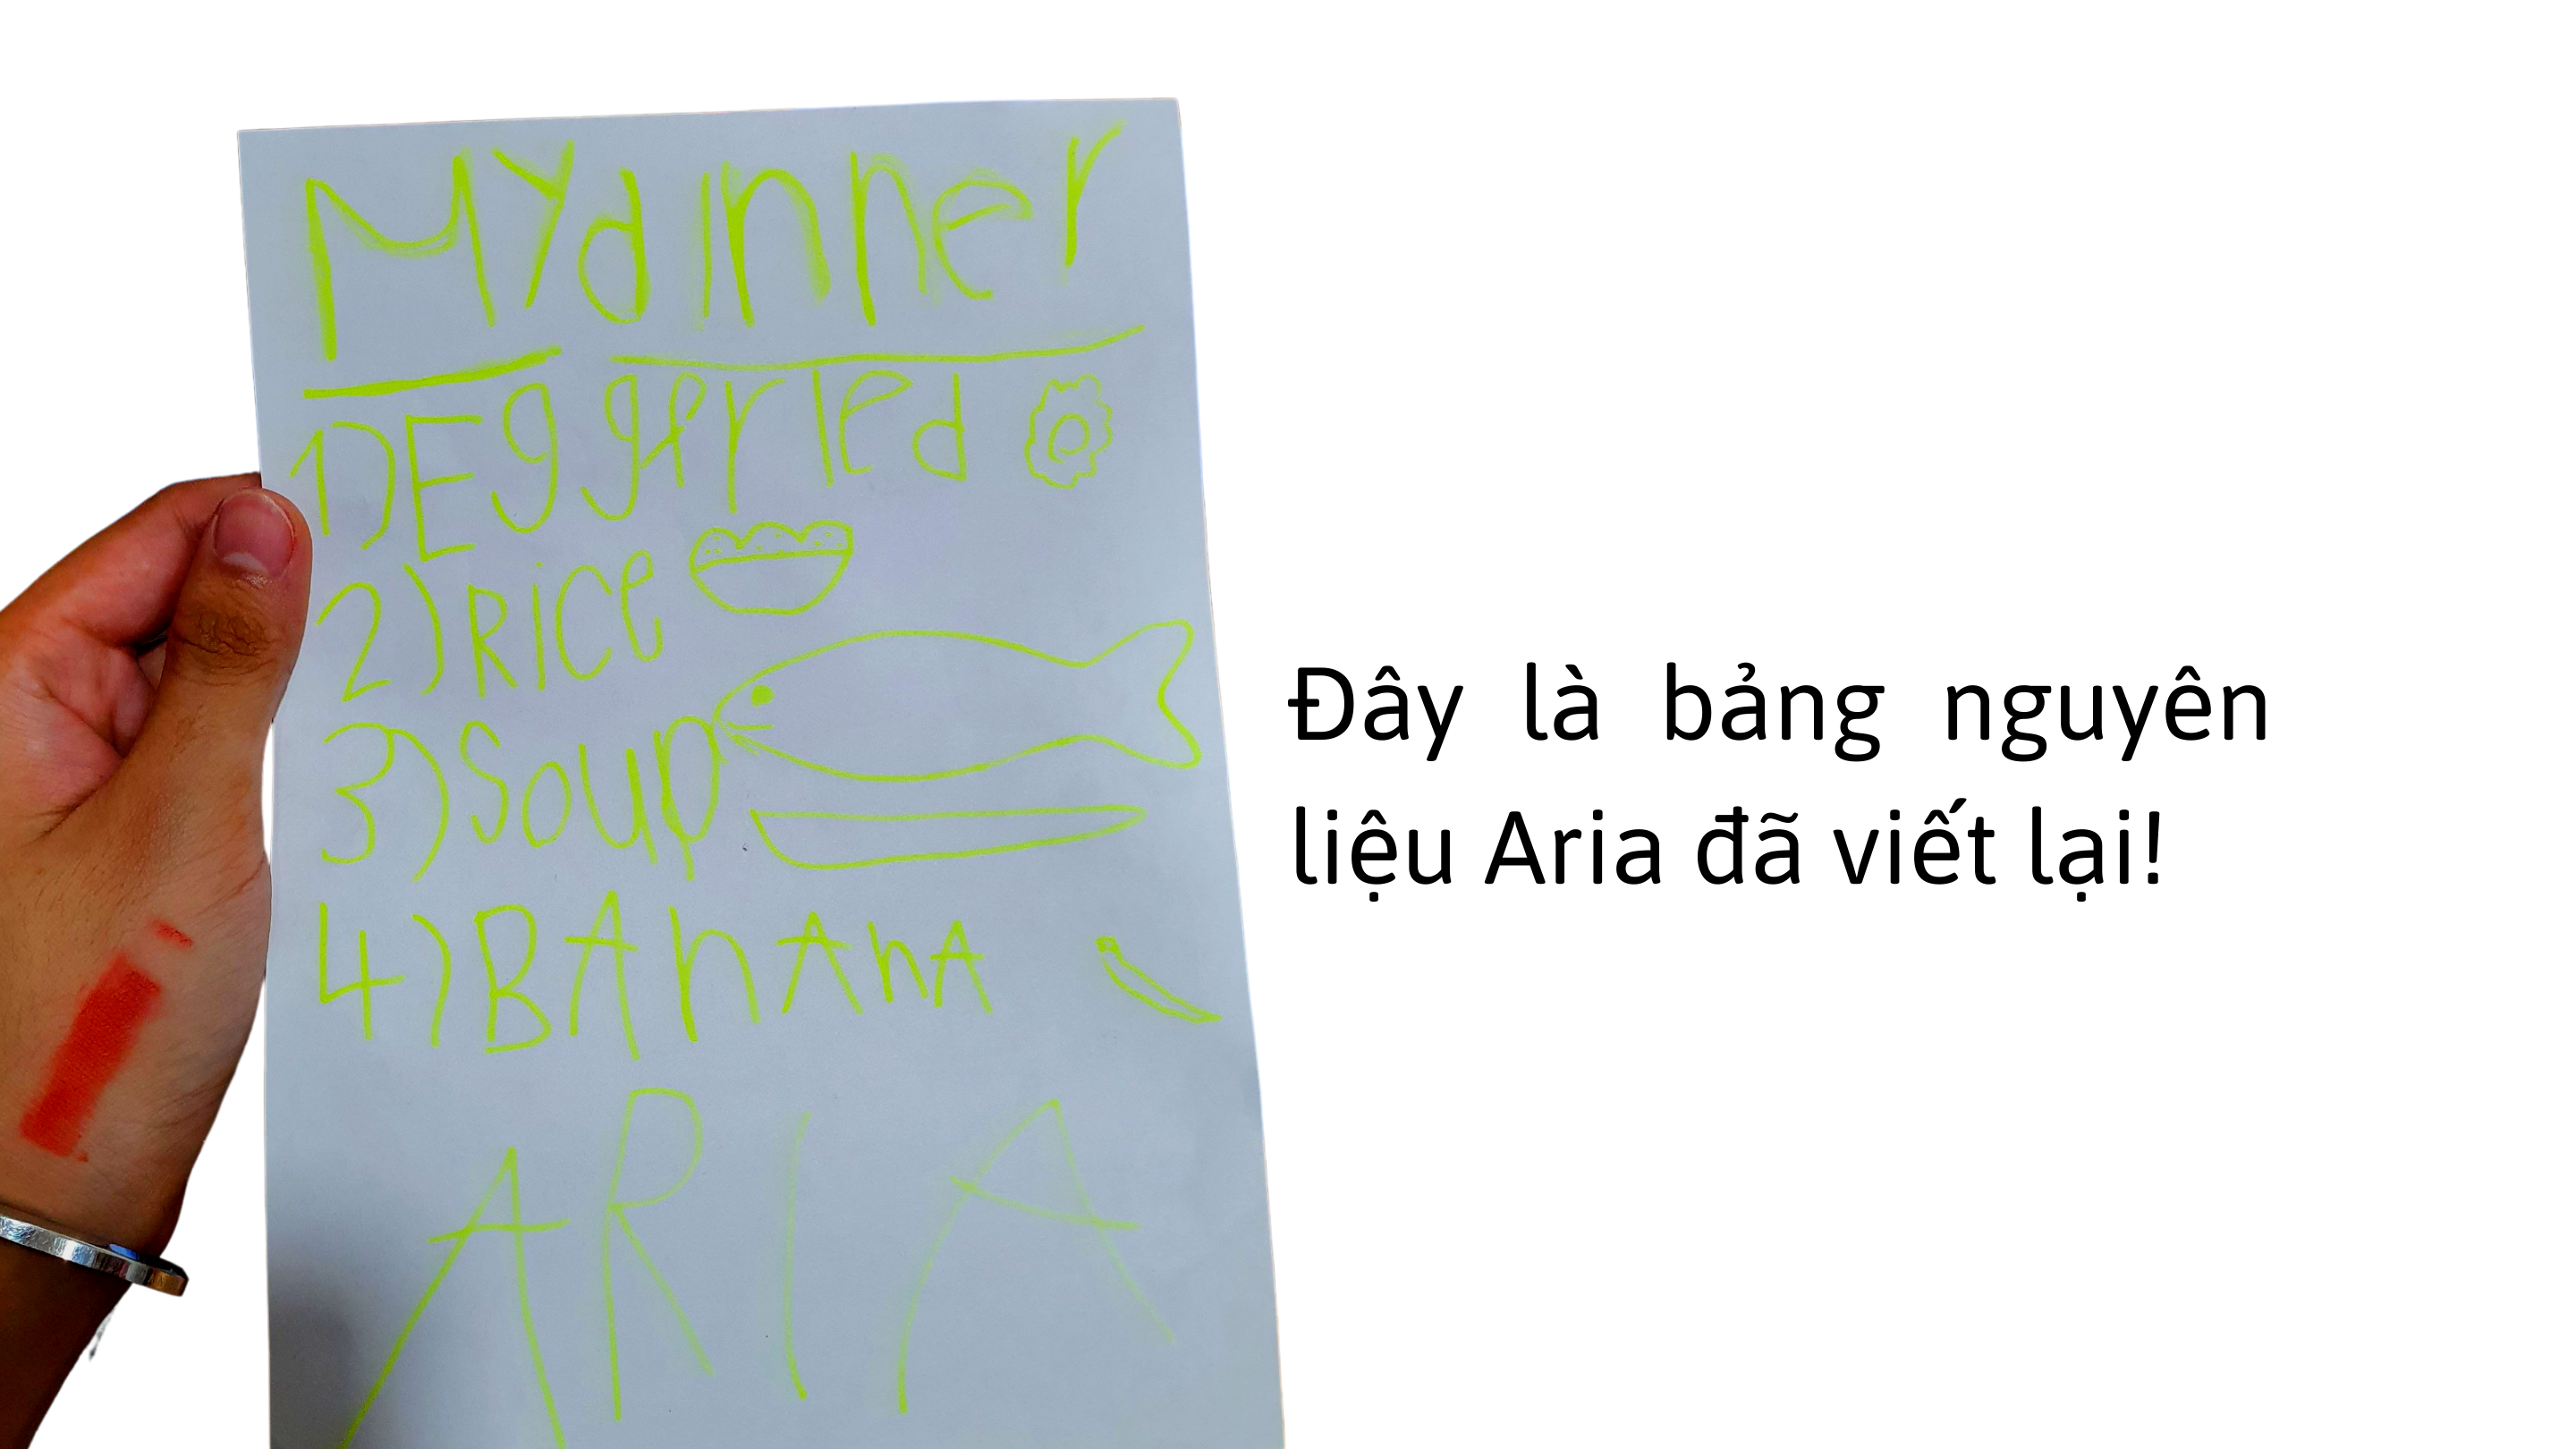 My dinner
1) Egg fried
2) Rice
3) Soup
4) BAnAnA
ARIA
Đây là bảng nguyên
liệu Aria đã viết lại!